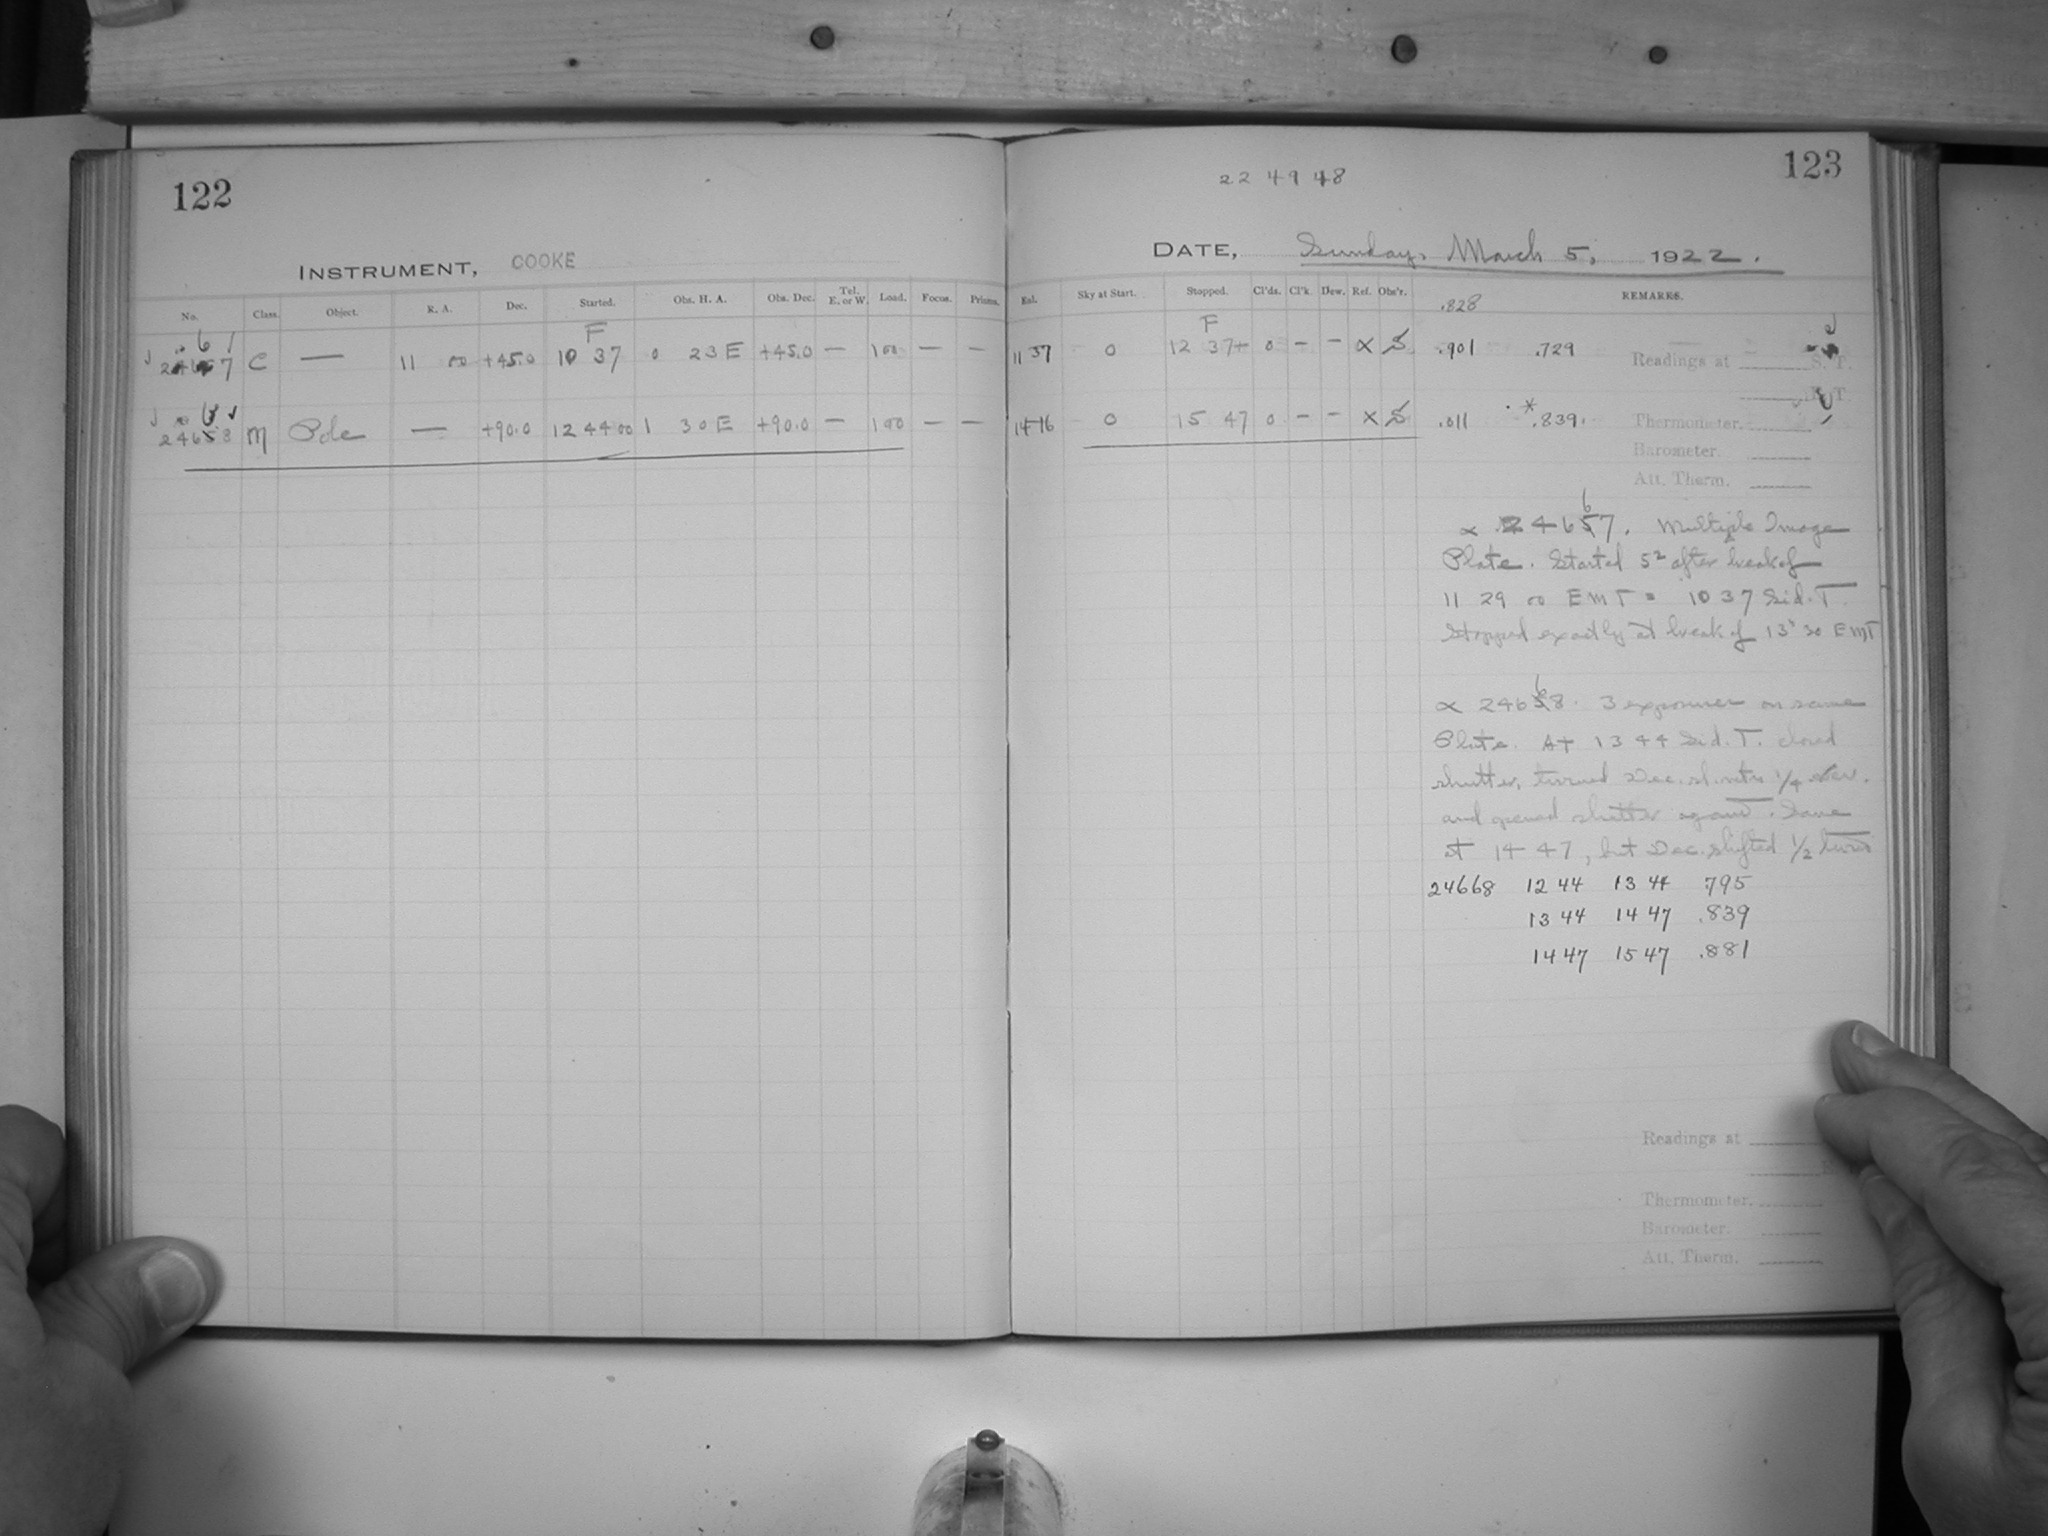 122
INSTRUMENT, COOKE
No. Class. Object. R. A. Dec. Started. Obs. H. A. Obs. Dec. Tel. E. or W. Load. Focus. Prisms.
F
24667 C — 11 00 +45.0 10 37 0 23 E +45.0 — 100 — —
24668 M Pole — +90.0 12 44 00 1 30 E +90.0 — 100 — —
123
22 49 48
DATE, Sunday, March 5, 1922.
Eal. Sky at Start. Stopped. Cl'ds. Cl'k Dew. Ref. Obs'r. REMARKS.
.828
F
11 37 0 12 37+ 0 - - α S .901 .729
Readings at S. T.
14 16 0 15 47 0 - - x S .011 * .839.
Thermometer.
Barometer.
Att. Therm.
α 24667. Multiple Image
Plate. Started 5s after break of
11 29 00 EMT = 10 37 Sid. T
Stopped exactly at break of 13h 30 EMT
α 24668. 3 exposures on same
Plate. At 13 44 Sid. T. closed
shutter, turned Dec. sl. mtn 1/4 rev.
and opened shutter again. Same
at 14 47, but Dec. shifted 1/2 turn
24668 12 44 13 44 .795
13 44 14 47 .839
14 47 15 47 .881
Readings at
Thermometer.
Barometer.
Att. Therm.